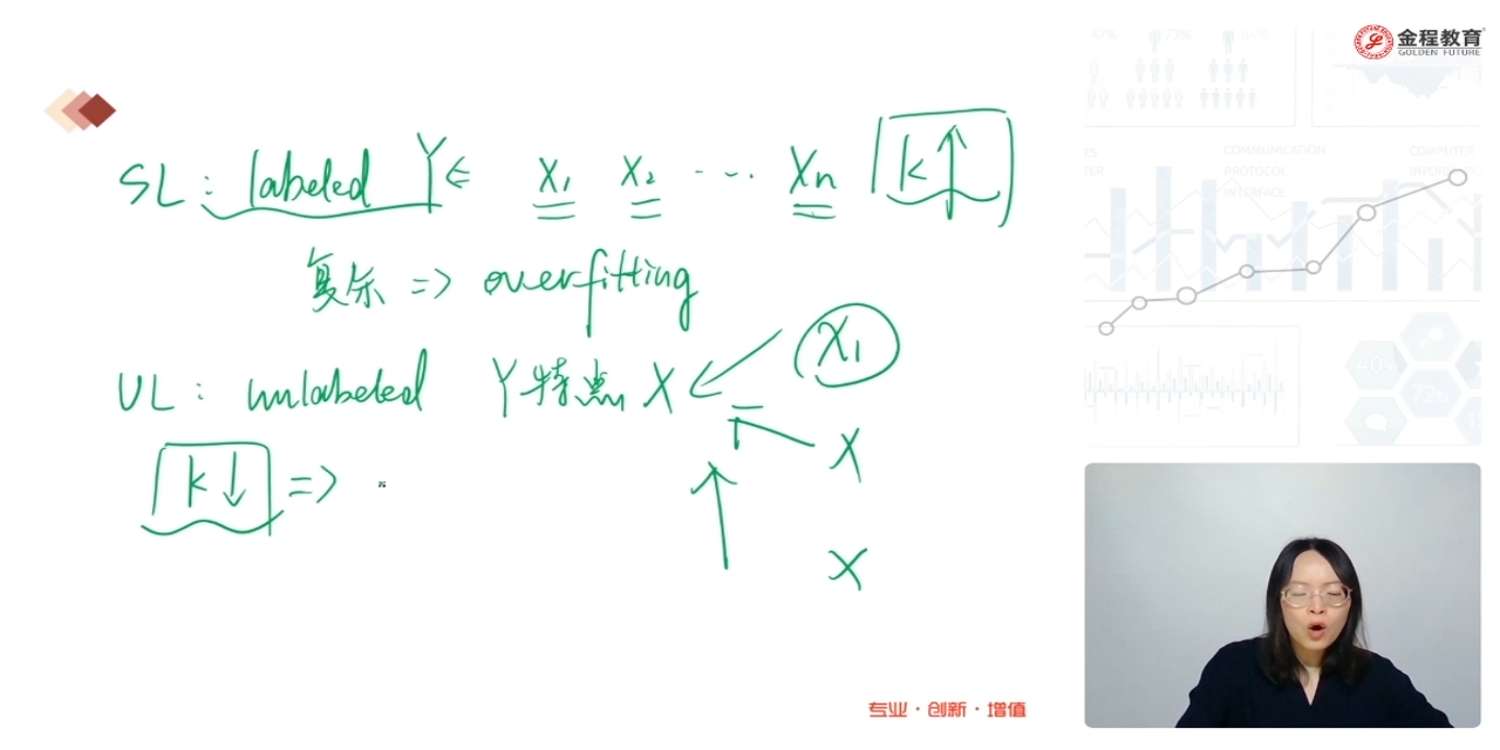 金程教育
GOLDEN FUTURE
SL: labeled Y ⇐ X₁ X₂ ... Xn k↑
复杂 => overfitting
UL: unlabeled Y特点 X ← X₁
X
k↓ =>
X
COMMUNICATION
PROTOCOL
INTERFACE
COMPUTER
专业·创新·增值